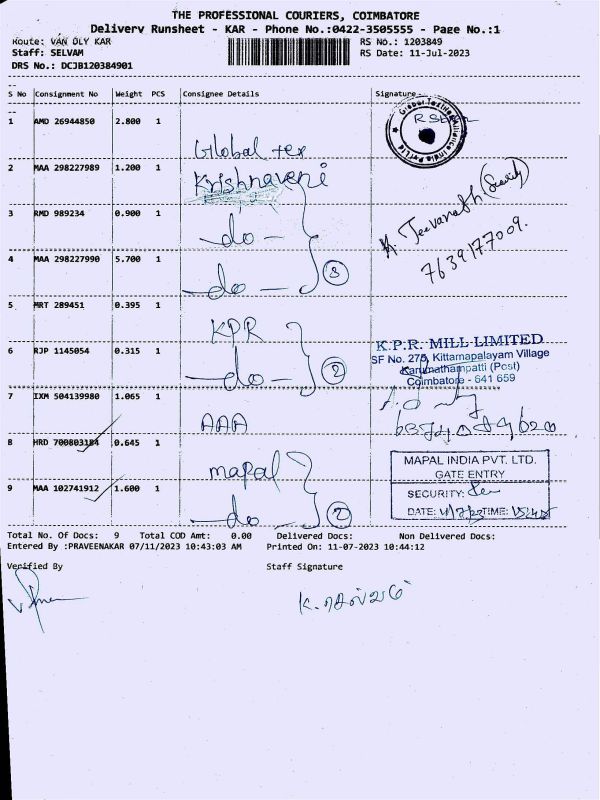 THE PROFESSIONAL COURIERS, COIMBATORE
Delivery Runsheet - KAR - Phone No.:0422-3505555 - Page No.:1
Route: VAN DLY KAR
Staff: SELVAM
DRS No.: DCJB120384901
RS No.: 1203849
RS Date: 11-Jul-2023
S No Consignment No Weight PCS Consignee Details Signature
1 AMD 26944850 2.800 1 Global tex
2 MAA 298227989 1.200 1 Krishnaveni
3 RMD 989234 0.900 1 -do-
4 MAA 298227990 5.700 1 -do- 3
K. Jeevanath (Security)
7639177009.
5 MRT 289451 0.395 1 KPR
6 RJP 1145054 0.315 1 -do- 2
K.P.R. MILL LIMITED
SF No. 275, Kittampalayam Village
Karumathampatti (Post)
Coimbatore - 641 659
7 IXM 504139980 1.065 1 AAA
8 HRD 700803184 0.645 1 mapal
9 MAA 102741912 1.600 1 -do- 2
MAPAL INDIA PVT. LTD.
GATE ENTRY
SECURITY:
DATE: TIME:
Total No. Of Docs: 9 Total COD Amt: 0.00 Delivered Docs: Non Delivered Docs:
Entered By :PRAVEENAKAR 07/11/2023 10:43:03 AM Printed On: 11-07-2023 10:44:12
Verified By Staff Signature